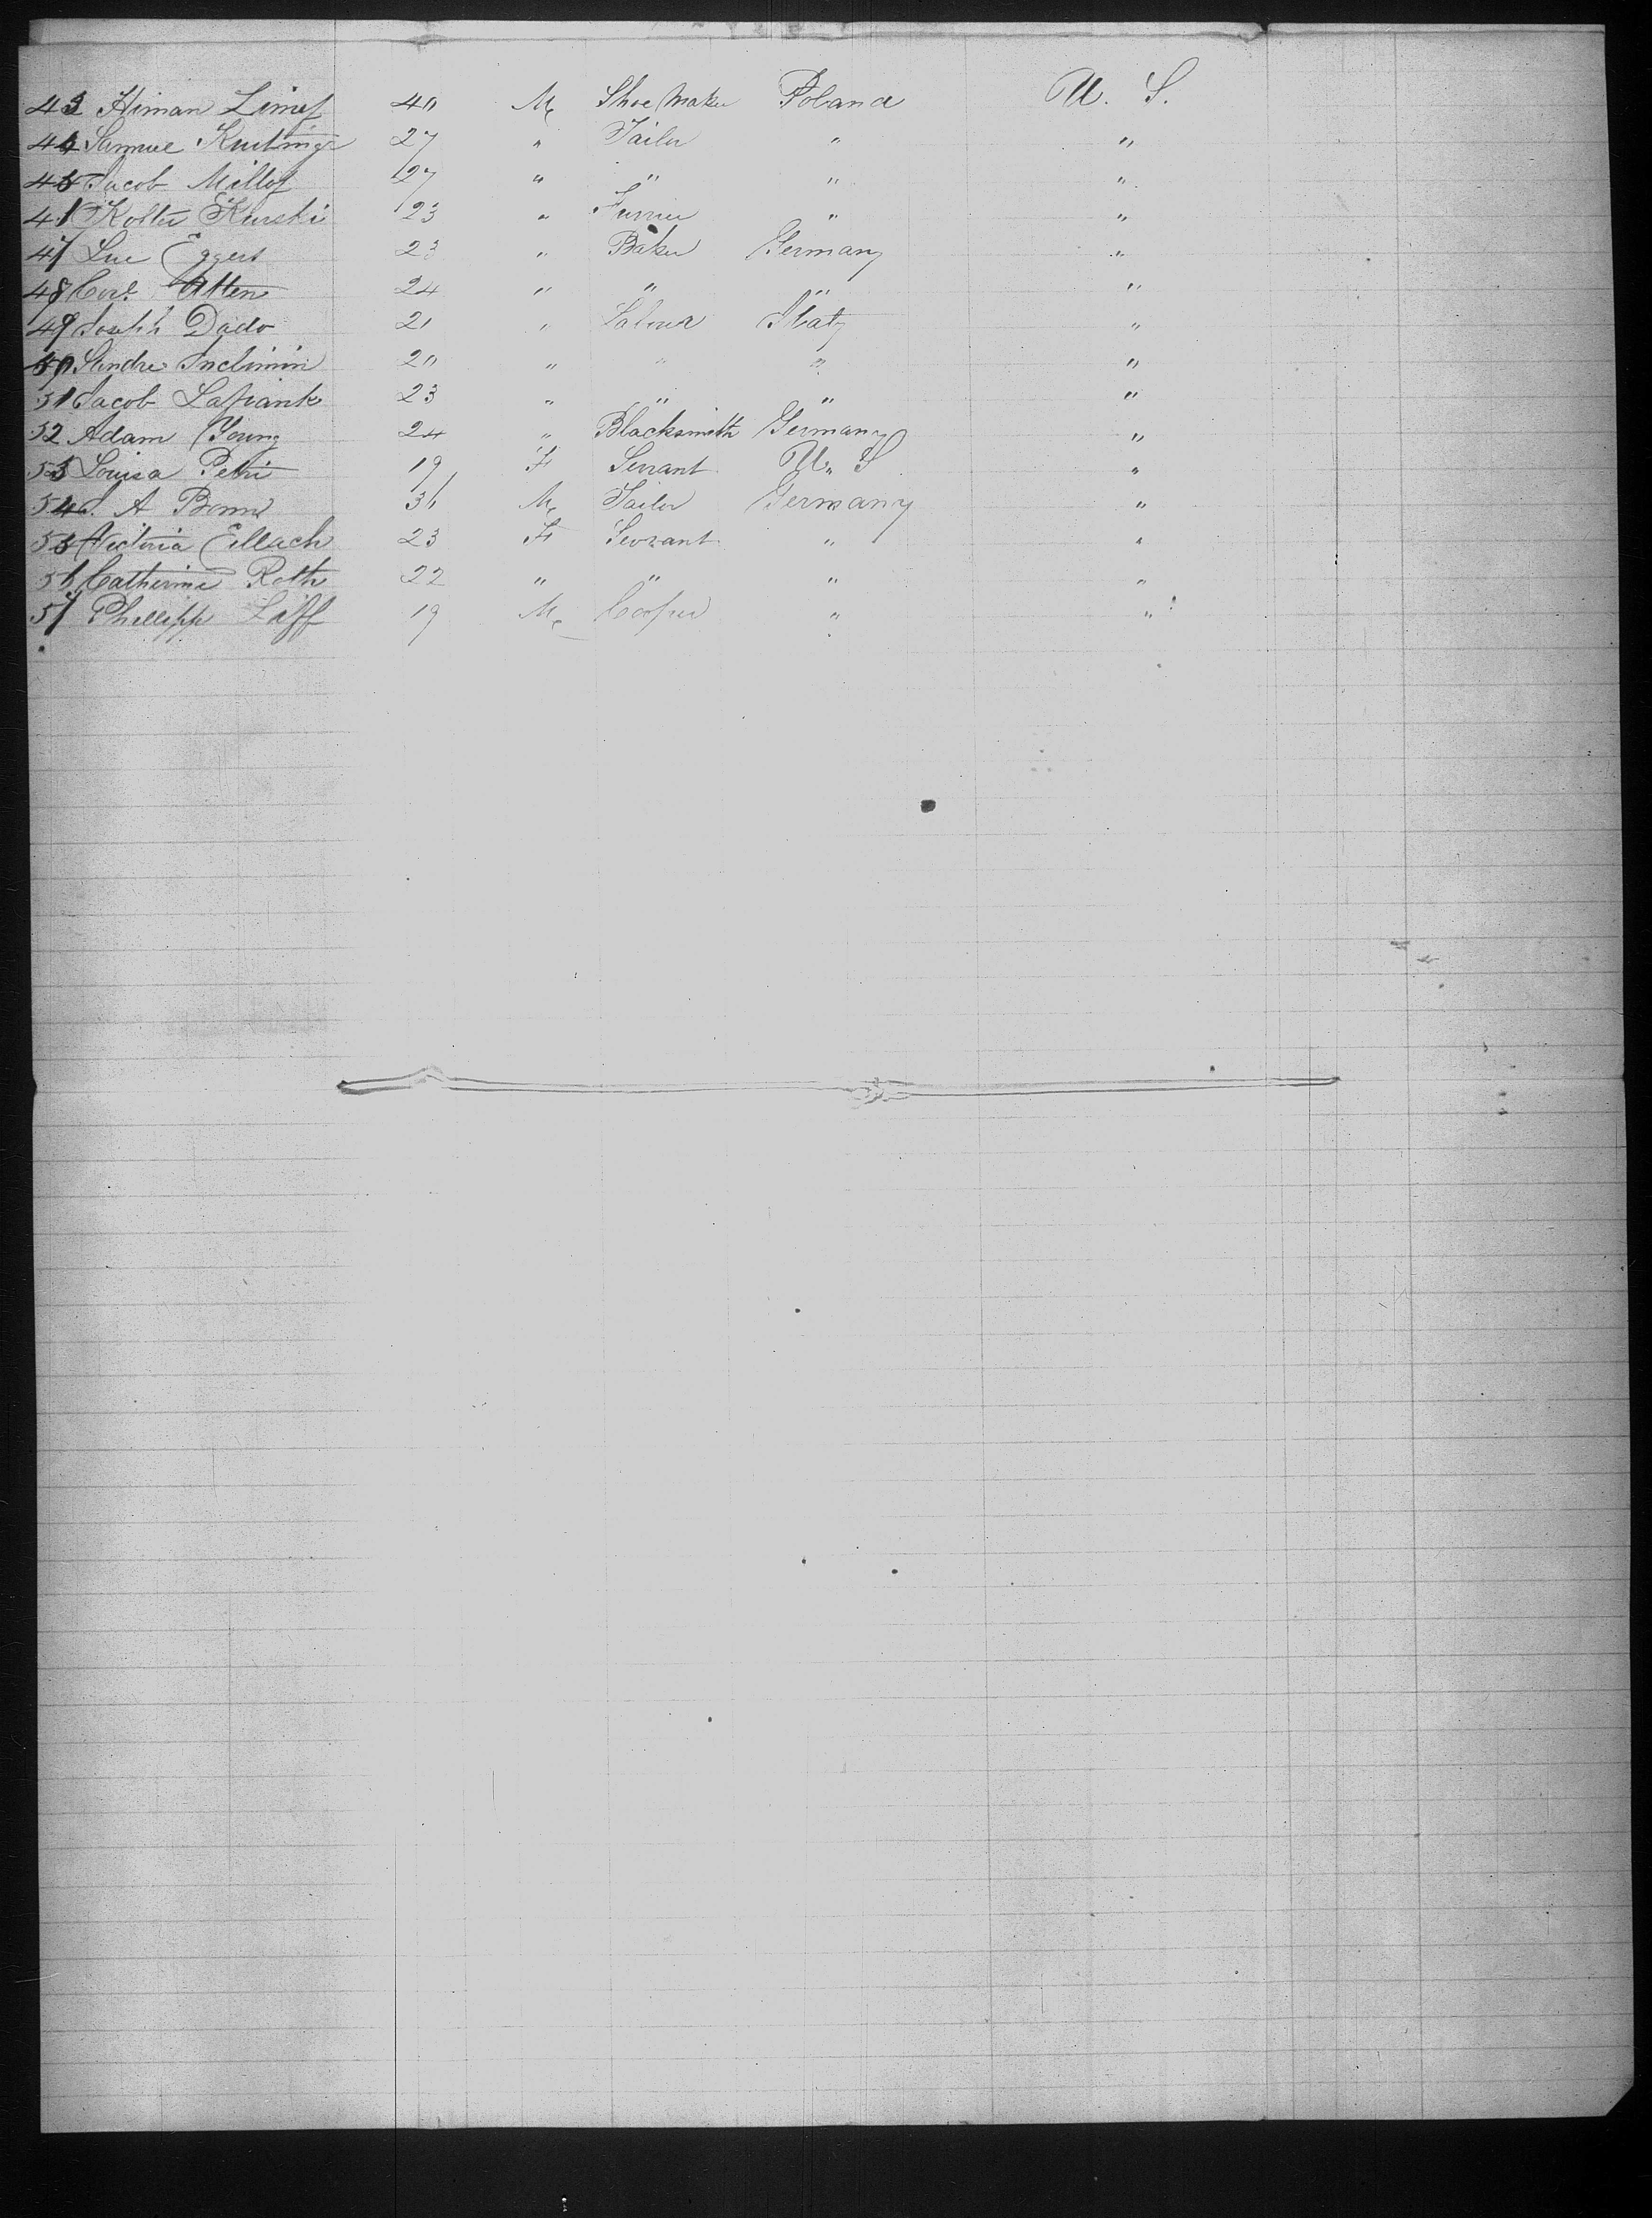 43 Himan Limef 40 M Shoe Maker Poland U. S.
44 Samuel 27 " Tailor " "
45 Jacob Millof 27 " " " "
Kurski 23 " Furrier " "
47 Eggers 23 " Baker Germany "
48 Carl Atten 24 " " " "
49 Joseph Dado 21 " Labour Italy "
50 20 " " " "
51 Jacob 23 " " " "
52 Adam Young 24 " Blacksmith Germany "
53 Louisa Petri 19 F Servant U. S "
54 A 36 M Tailor Germany "
55 Victoria Eillach 23 F Servant " "
56 Catherine Roth 22 " " " "
57 Phillipp Laff 19 M Cooper " "